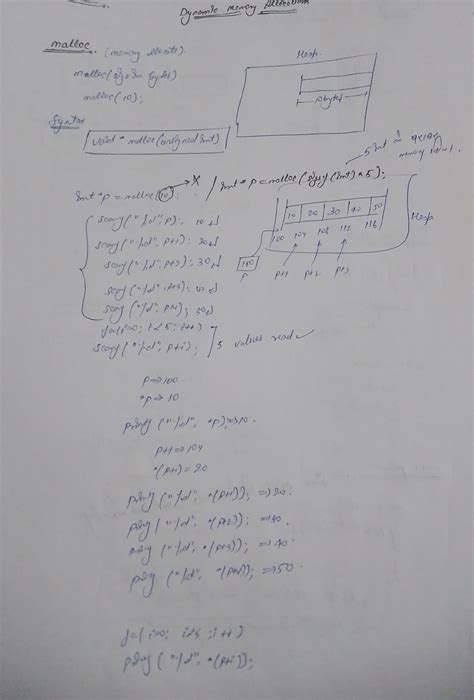 Dynamic Memory Allocation
malloc (memory allocate).
malloc(size in bytes)
malloc(10);
Heap.
10 bytes
Syntax
void * malloc(unsigned int)
5 int
int *p = malloc(10); X / int *p = malloc(sizeof(int)*5);
scanf("%d", p); 10
scanf("%d", p+1); 20
scanf("%d", p+2); 30
scanf("%d", p+3); 40
scanf("%d", p+4); 50
10 20 30 40 50
100 104 108 112 116
Heap
100
p p+1 p+2 p+3
for(i=0; i<5; i++)
scanf("%d", p+i); 5 values read
p => 100
*p => 10
printf("%d", *p); => 10.
p+1 => 104
*(p+1) = 20
printf("%d", *(p+1)); => 20.
printf("%d", *(p+2)); => 30.
printf("%d", *(p+3)); => 40.
printf("%d", *(p+4)); => 50.
for(i=0; i<5; i++)
printf("%d", *(p+i));